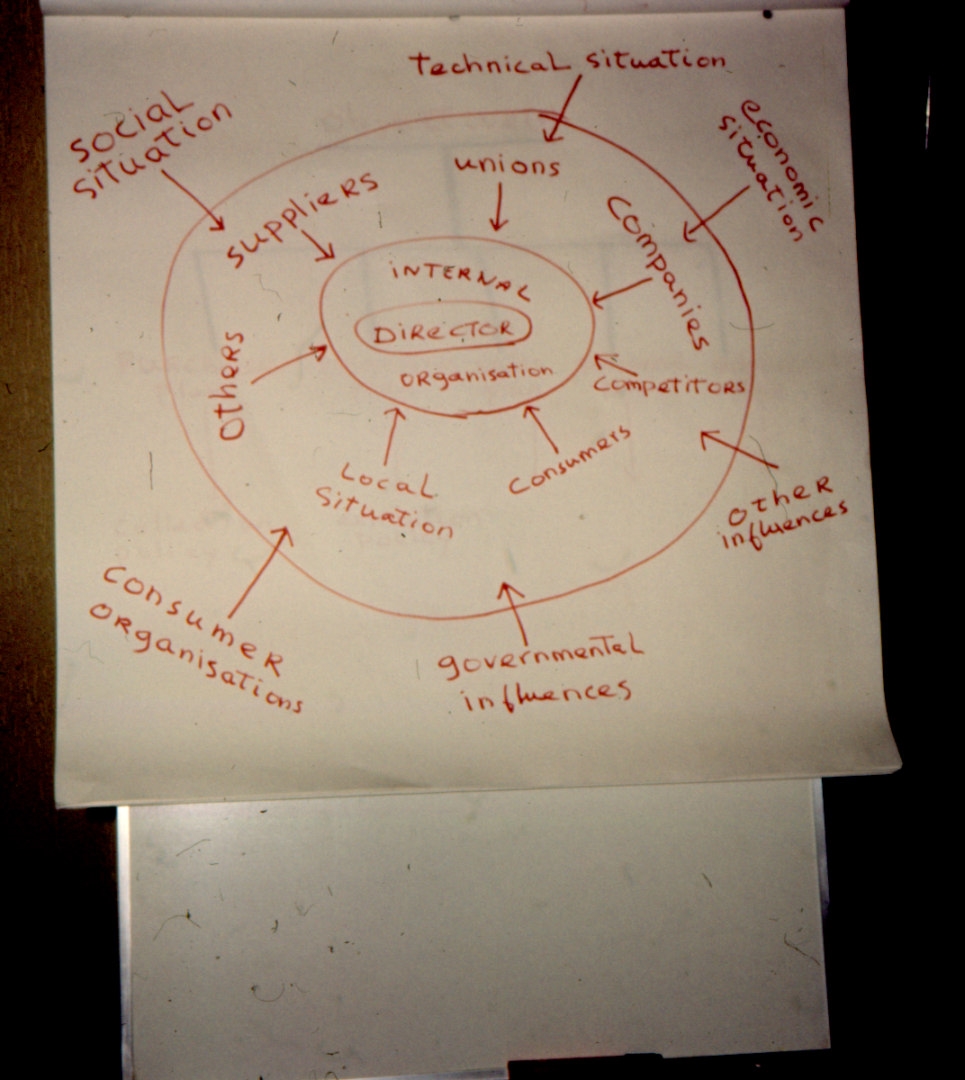 technical situation
social
situation
economic
situation
unions
suppliers
companies
INTERNAL
DIRECTOR
ORganisation
Others
competitors
Local
Situation
consumers
other
influences
consumer
organisations
governmental
influences